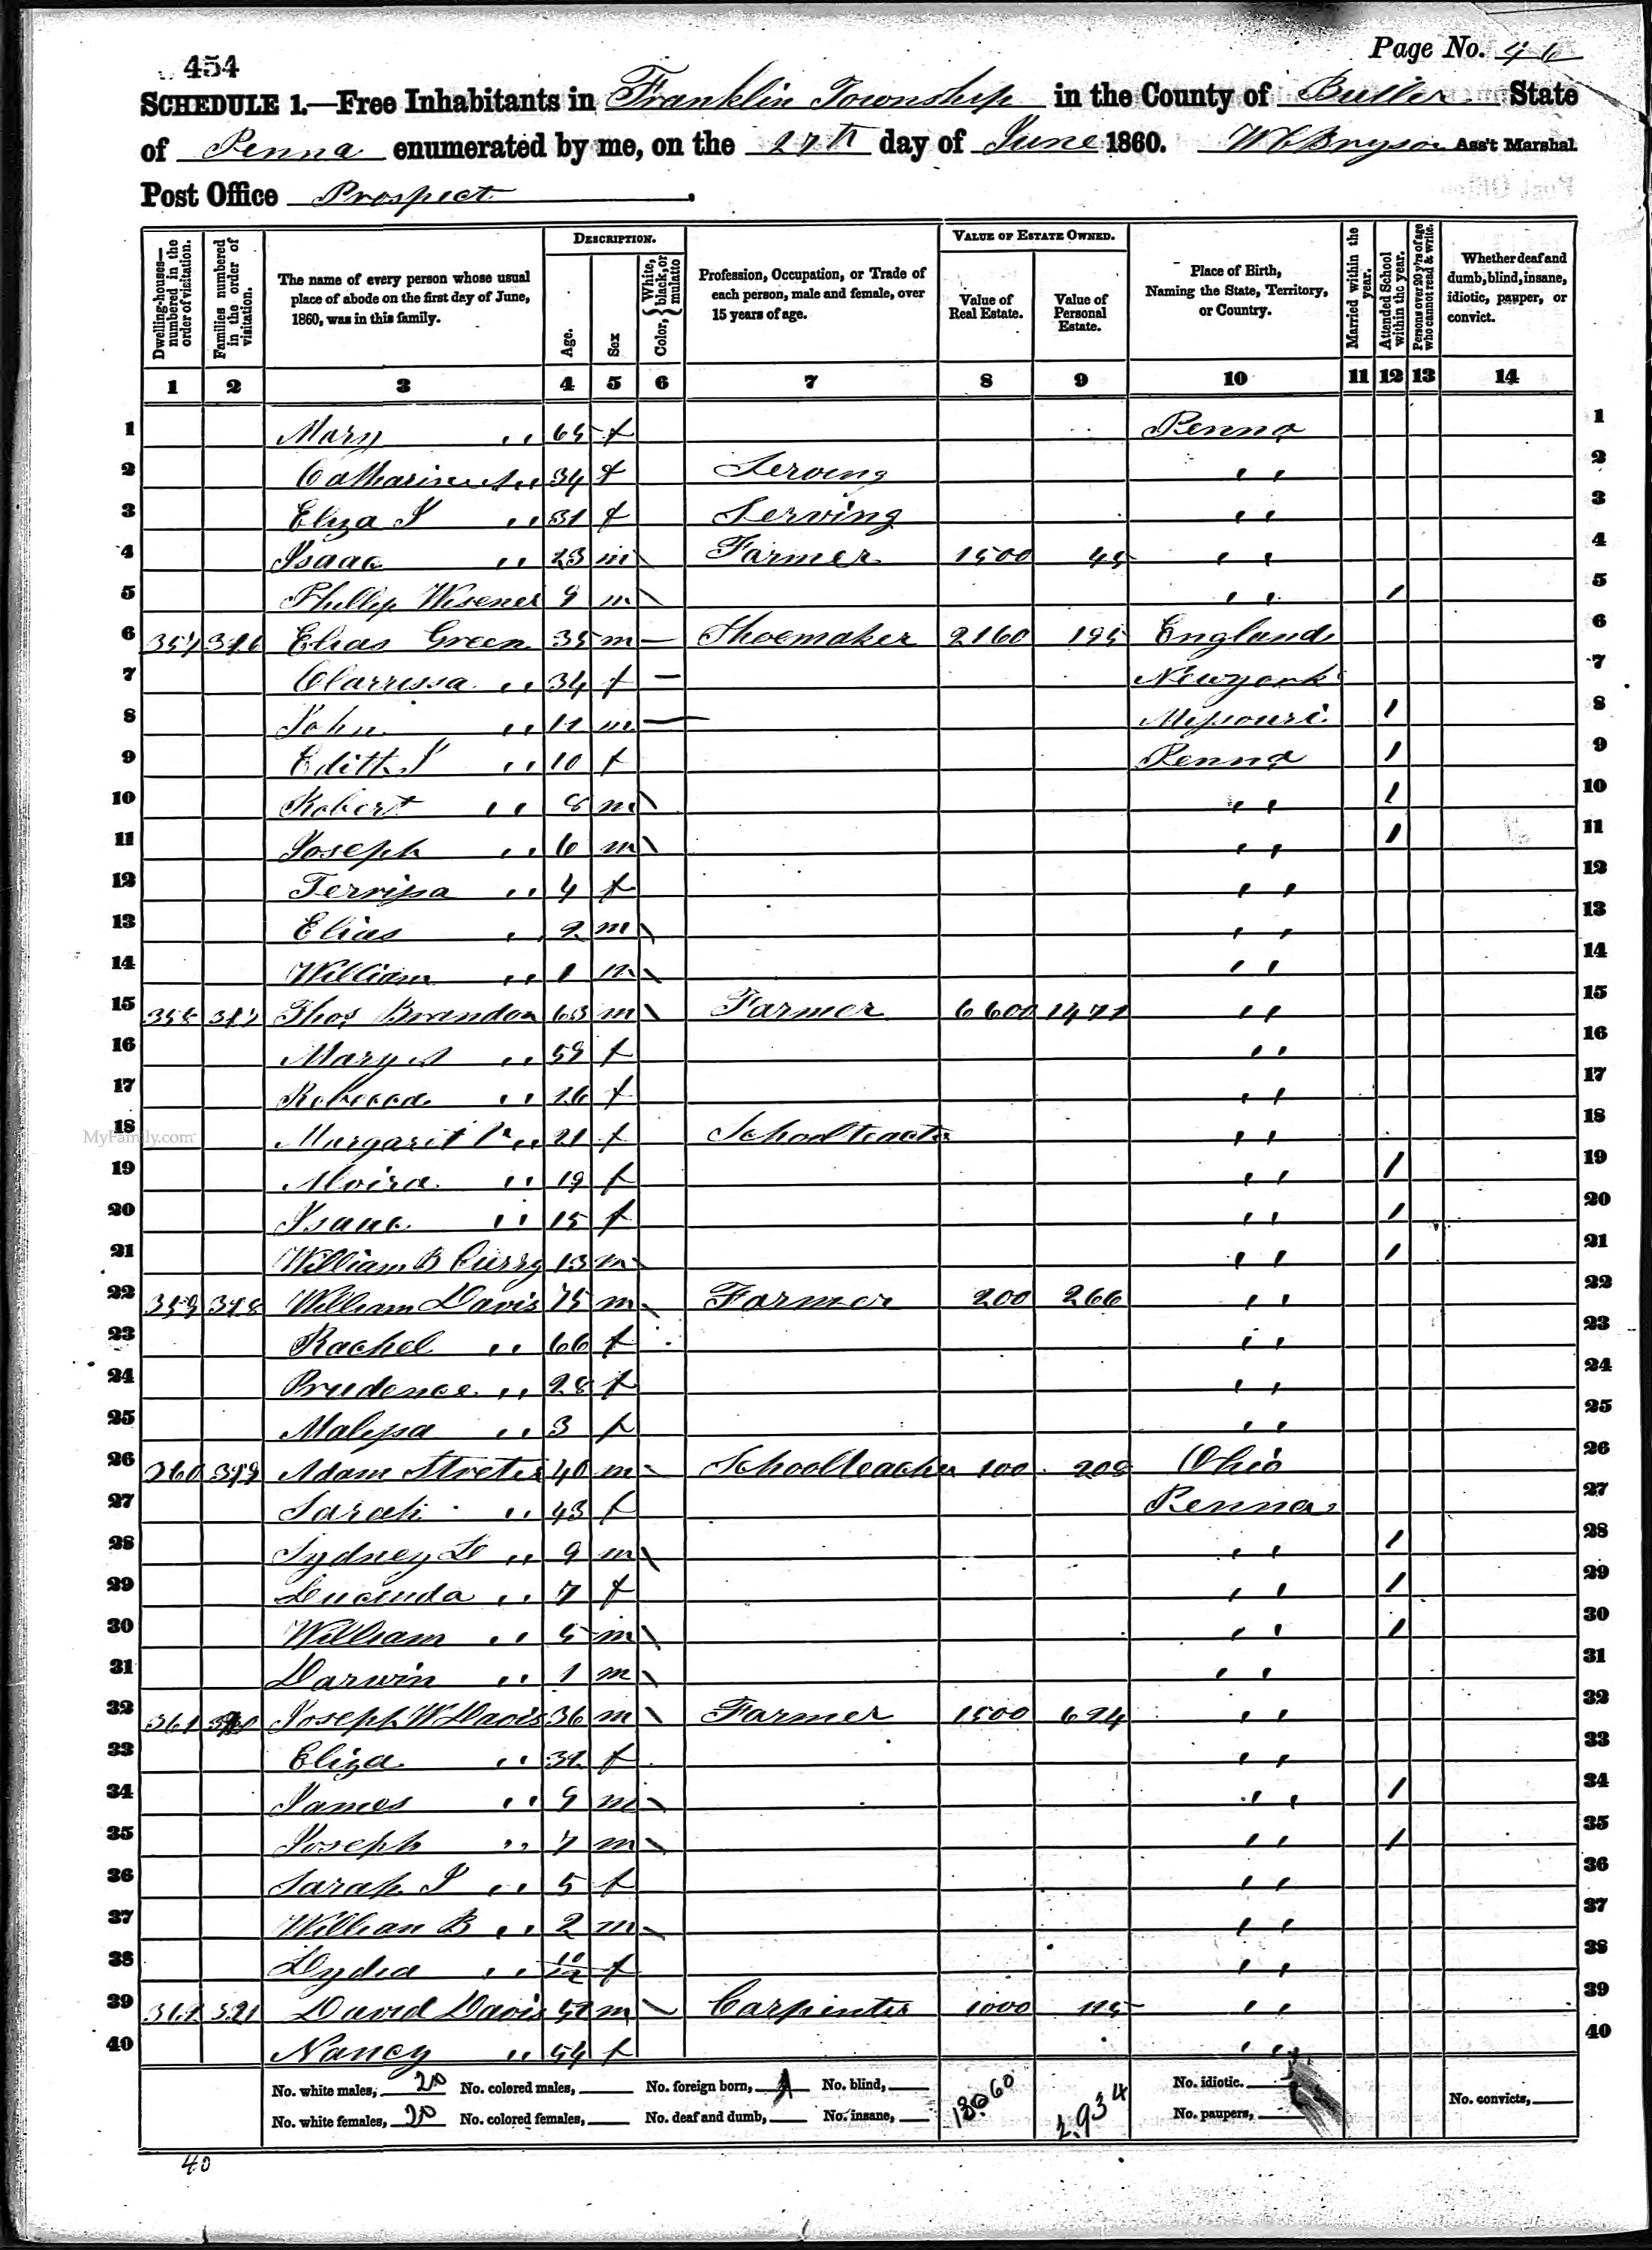 Page No. 46
454
SCHEDULE 1.—Free Inhabitants in Franklin Township in the County of Butler State
of Penna enumerated by me, on the 27th day of June 1860. W C Bryson Ass't Marshal
Post Office Prospect.
Dwelling-houses—numbered in the order of visitation.
Families numbered in the order of visitation.
The name of every person whose usual place of abode on the first day of June, 1860, was in this family.
DESCRIPTION.
Age.
Sex
Color, { White, black, or mulatto
Profession, Occupation, or Trade of each person, male and female, over 15 years of age.
VALUE OF ESTATE OWNED.
Value of Real Estate.
Value of Personal Estate.
Place of Birth, Naming the State, Territory, or Country.
Married within the year.
Attended School within the year.
Persons over 20 y'rs of age who cannot read & write.
Whether deaf and dumb, blind, insane, idiotic, pauper, or convict.
1 2 3 4 5 6 7 8 9 10 11 12 13 14
1 Mary " 65 f Penna 1
2 Catharine " 34 f Serving " " 2
3 Eliza J " 31 f Serving " " 3
4 Isaac " 23 m \ Farmer 1500 45 " " 4
5 Phillip Wisener 9 m \ " " / 5
6 357 316 Elias Green 35 m — Shoemaker 2160 195 England 6
7 Clarrissa " 34 f — Newyork 7
8 John " 11 m — Missouri / 8
9 Edith J " 10 f Penna / 9
10 Robert " 8 m \ " " / 10
11 Joseph " 6 m \ " " / 11
12 Terrissa " 4 f " " 12
13 Elias " 2 m \ " " 13
14 William " 1 m \ " " 14
15 358 317 Thos Brandon 63 m \ Farmer 6600 1471 " " 15
16 Mary A " 59 f " " 16
17 Rebecca " 26 f " " 17
18 Margaret " 21 f Schoolteacher " " 18
MyFamily.com
19 " 19 f " " / 19
20 Isaac " 15 f " " / 20
21 William B Curry 13 m \ " " / 21
22 359 318 William Davis 75 m \ Farmer 200 266 " " 22
23 Rachel " 66 f " " 23
24 Prudence " 28 f " " 24
25 Malissa " 3 f " " 25
26 360 319 Adam 40 m - Schoolteacher 100 208 Ohio 26
27 Sarah " 43 f Penna 27
28 Sydney " 9 m \ " " / 28
29 Lucinda " 7 f " " / 29
30 William " 5 m \ " " / 30
31 Darwin " 1 m \ " " 31
32 361 Joseph W Davis 36 m \ Farmer 1500 674 " " 32
33 Eliza " 32 f " " 33
34 James " 9 m \ " " / 34
35 Joseph " 7 m \ " " / 35
36 Sarah J " 5 f " " 36
37 William B " 2 m \ " " 37
38 Lydia " f " " 38
39 362 321 David Davis 52 m \ Carpenter 1000 " " 39
40 Nancy " 54 f " " 40
No. white males, 20 No. colored males, No. foreign born, 1 No. blind, 13060 2,934 No. idiotic. No. convicts,
No. white females, 20 No. colored females, No. deaf and dumb, No. insane, No. paupers,
40